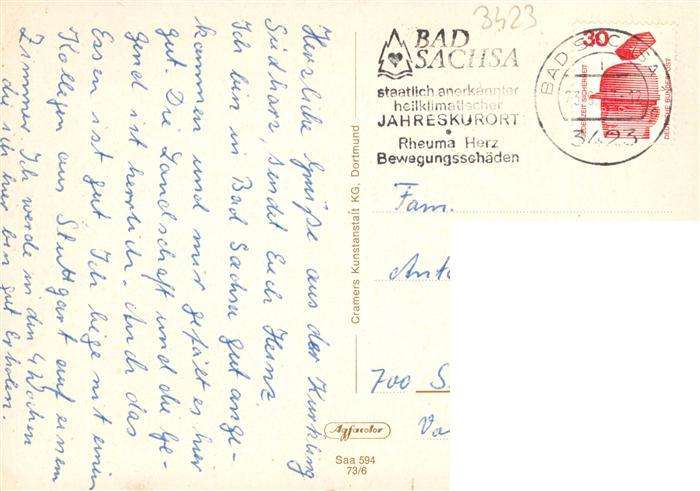 Herzliche Grüße aus der Kurkling
Südharz, sendet Euch Heinz.
Ich bin in Bad Sachsa gut ange-
kommen und mir gefält es hier
gut. Die Landschaft und die Ge-
gend ist herrlich. Auch das
Essen ist gut. Ich liege mit einem
Kollegen aus Stuttgart auf einem
Zimmer. Ich werde in den 4 Wochen
die ich hier bin gut Erholen.
Cramers Kunstanstalt KG. Dortmund
Agfacolor
Saa 594
73/6
3423
BAD
SACHSA
staatlich anerkannter
heilklimatischer
JAHRESKURORT
Rheuma Herz
Bewegungsschäden
BAD SACHSA
3423
30
JEDERZEIT SICHERHEIT
DEUTSCHE BUNDESPOST
Fam.
Anto
700 S
Va